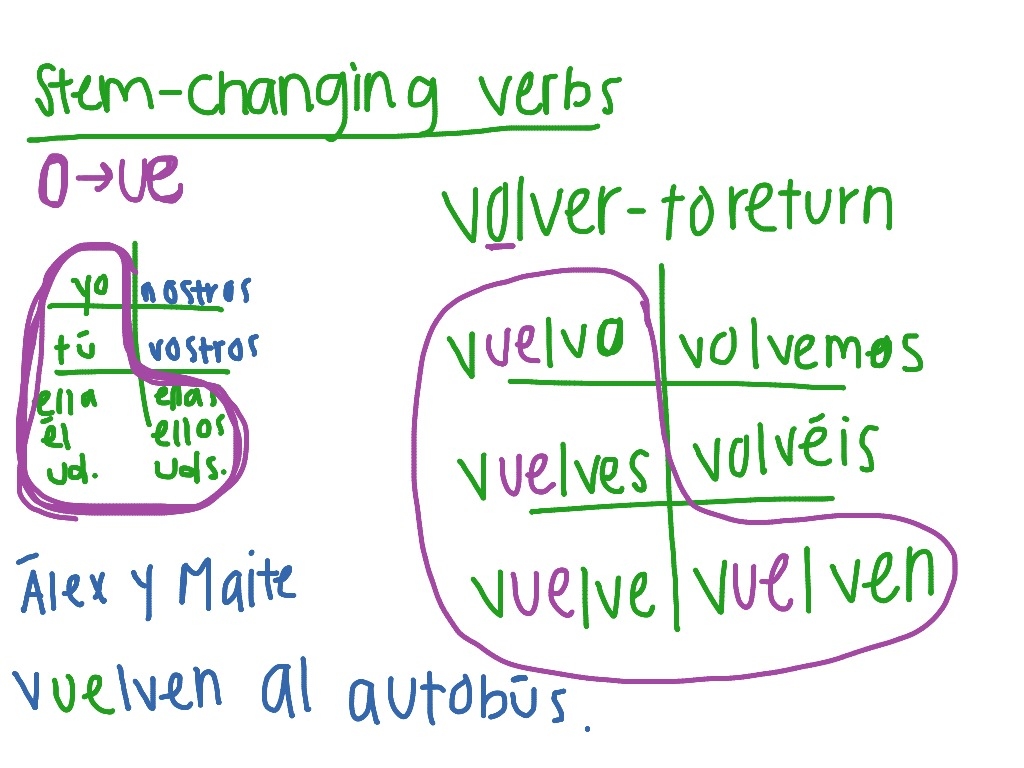 Stem-changing verbs
o→ue
yo nostros
tú vostros
ella ellas
él ellos
ud. uds.
volver-to return
vuelvo volvemos
vuelves volvéis
vuelve vuelven
Álex y Maite
vuelven al autobús.